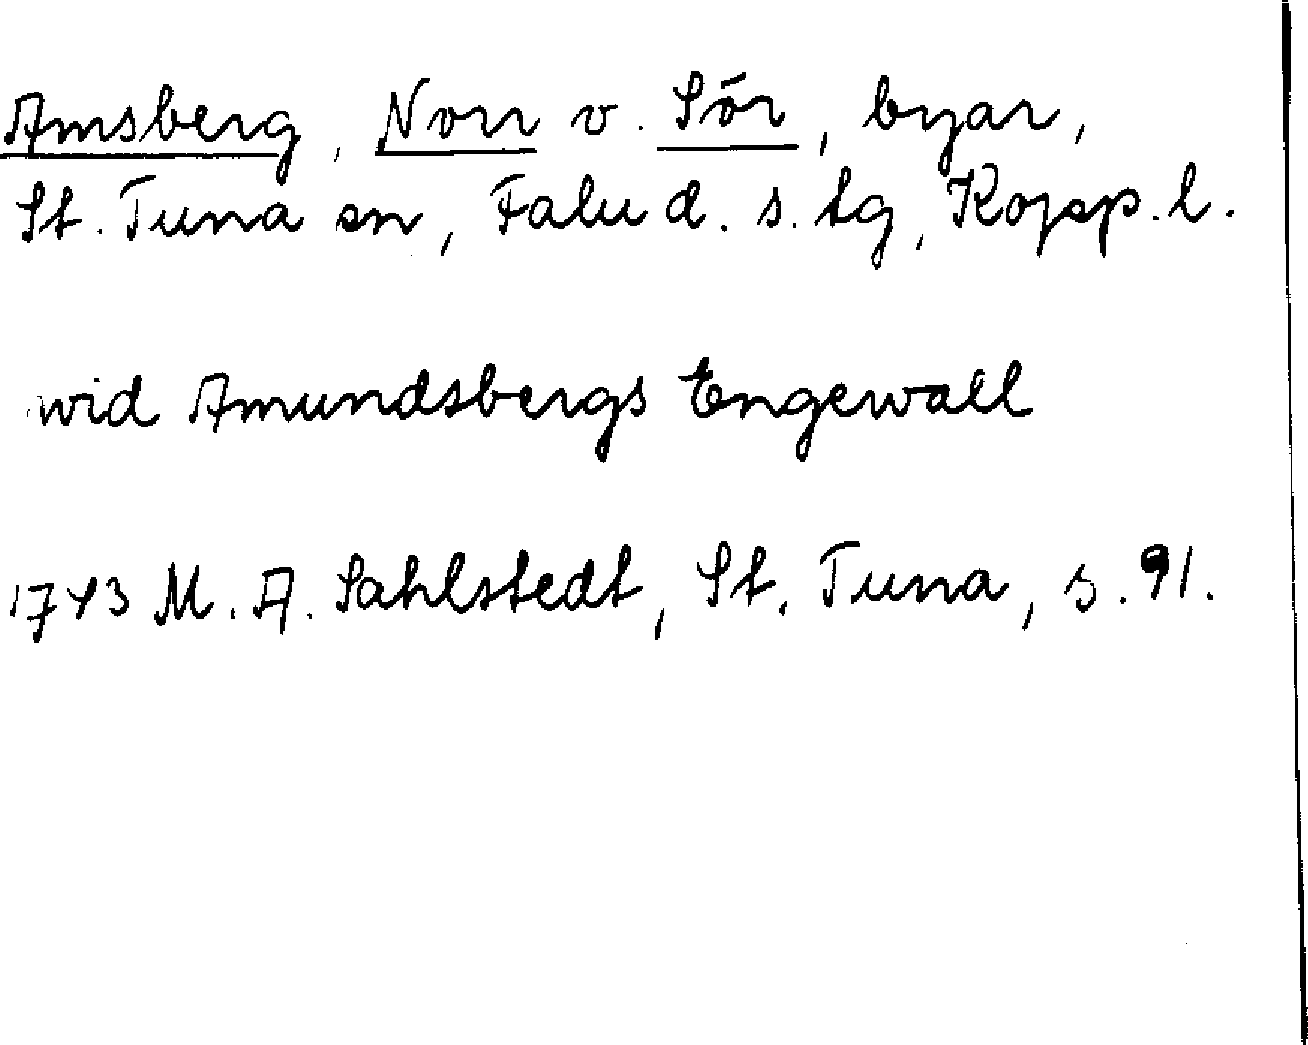 Amsberg, Norr v. Sör, byar,
St. Tuna sn, Falu d. s. tg, Kopp. l.
wid Amundsbergs Engewall
1743 M. A. Sahlstedt, St. Tuna, s. 91.